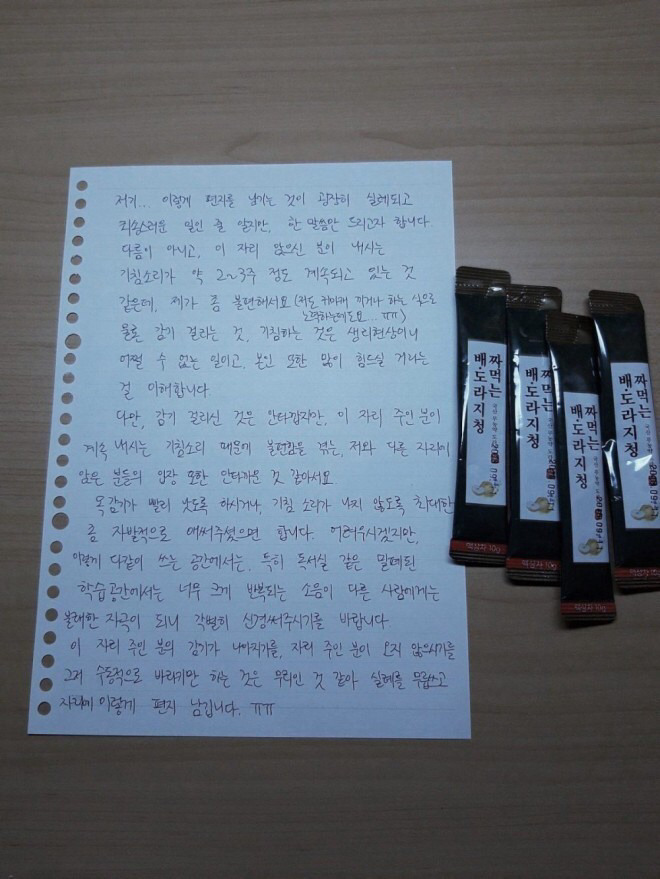 저기... 이렇게 편지를 남기는 것이 굉장히 실례되고
죄송스러운 일인 줄 알지만, 한 말씀만 드리고자 합니다
다름이 아니고, 이 자리 앉으신 분이 내시는
기침소리가 약 2~3주 정도 계속되고 있는 것
같은데, 제가 좀 불편해서요 (저도 귀마개 끼거나 하는 식으로
노력하는데도요... ㅠㅠ)
물론 감기 걸리는 것, 기침하는 것은 생리현상이니
어쩔 수 없는 일이고, 본인 또한 많이 힘드실 거라는
걸 이해합니다
다만, 감기 걸리신 것은 안타깝지만, 이 자리 주인 분이
계속 내시는 기침소리 때문에 불편함을 겪는, 저와 다른 자리에
앉은 분들의 입장 또한 안타까운 것 같아서요
목감기가 빨리 낫도록 하시거나, 기침 소리가 나지 않도록 최대한
좀 자발적으로 애써주셨으면 합니다. 어려우시겠지만,
이렇게 다같이 쓰는 공간에서는, 특히 독서실 같은 밀폐된
학습공간에서는 너무 크게 반복되는 소음이 다른 사람에게는
불쾌한 자극이 되니 각별히 신경써주시기를 바랍니다
이 자리 주인 분의 감기가 나아지기를, 자리 주인 분이 오지 않으시기를
그저 수동적으로 바라기만 하는 것은 무리인 것 같아 실례를 무릅쓰고
자리에 이렇게 편지 남깁니다. ㅠㅠ
짜먹는
배·도라지청
짜먹는
배·도라지청
짜먹는
배·도라지청
짜먹는
배·도라지청
액상차 10g
액상차 10g
액상차 10g
액상차 10g